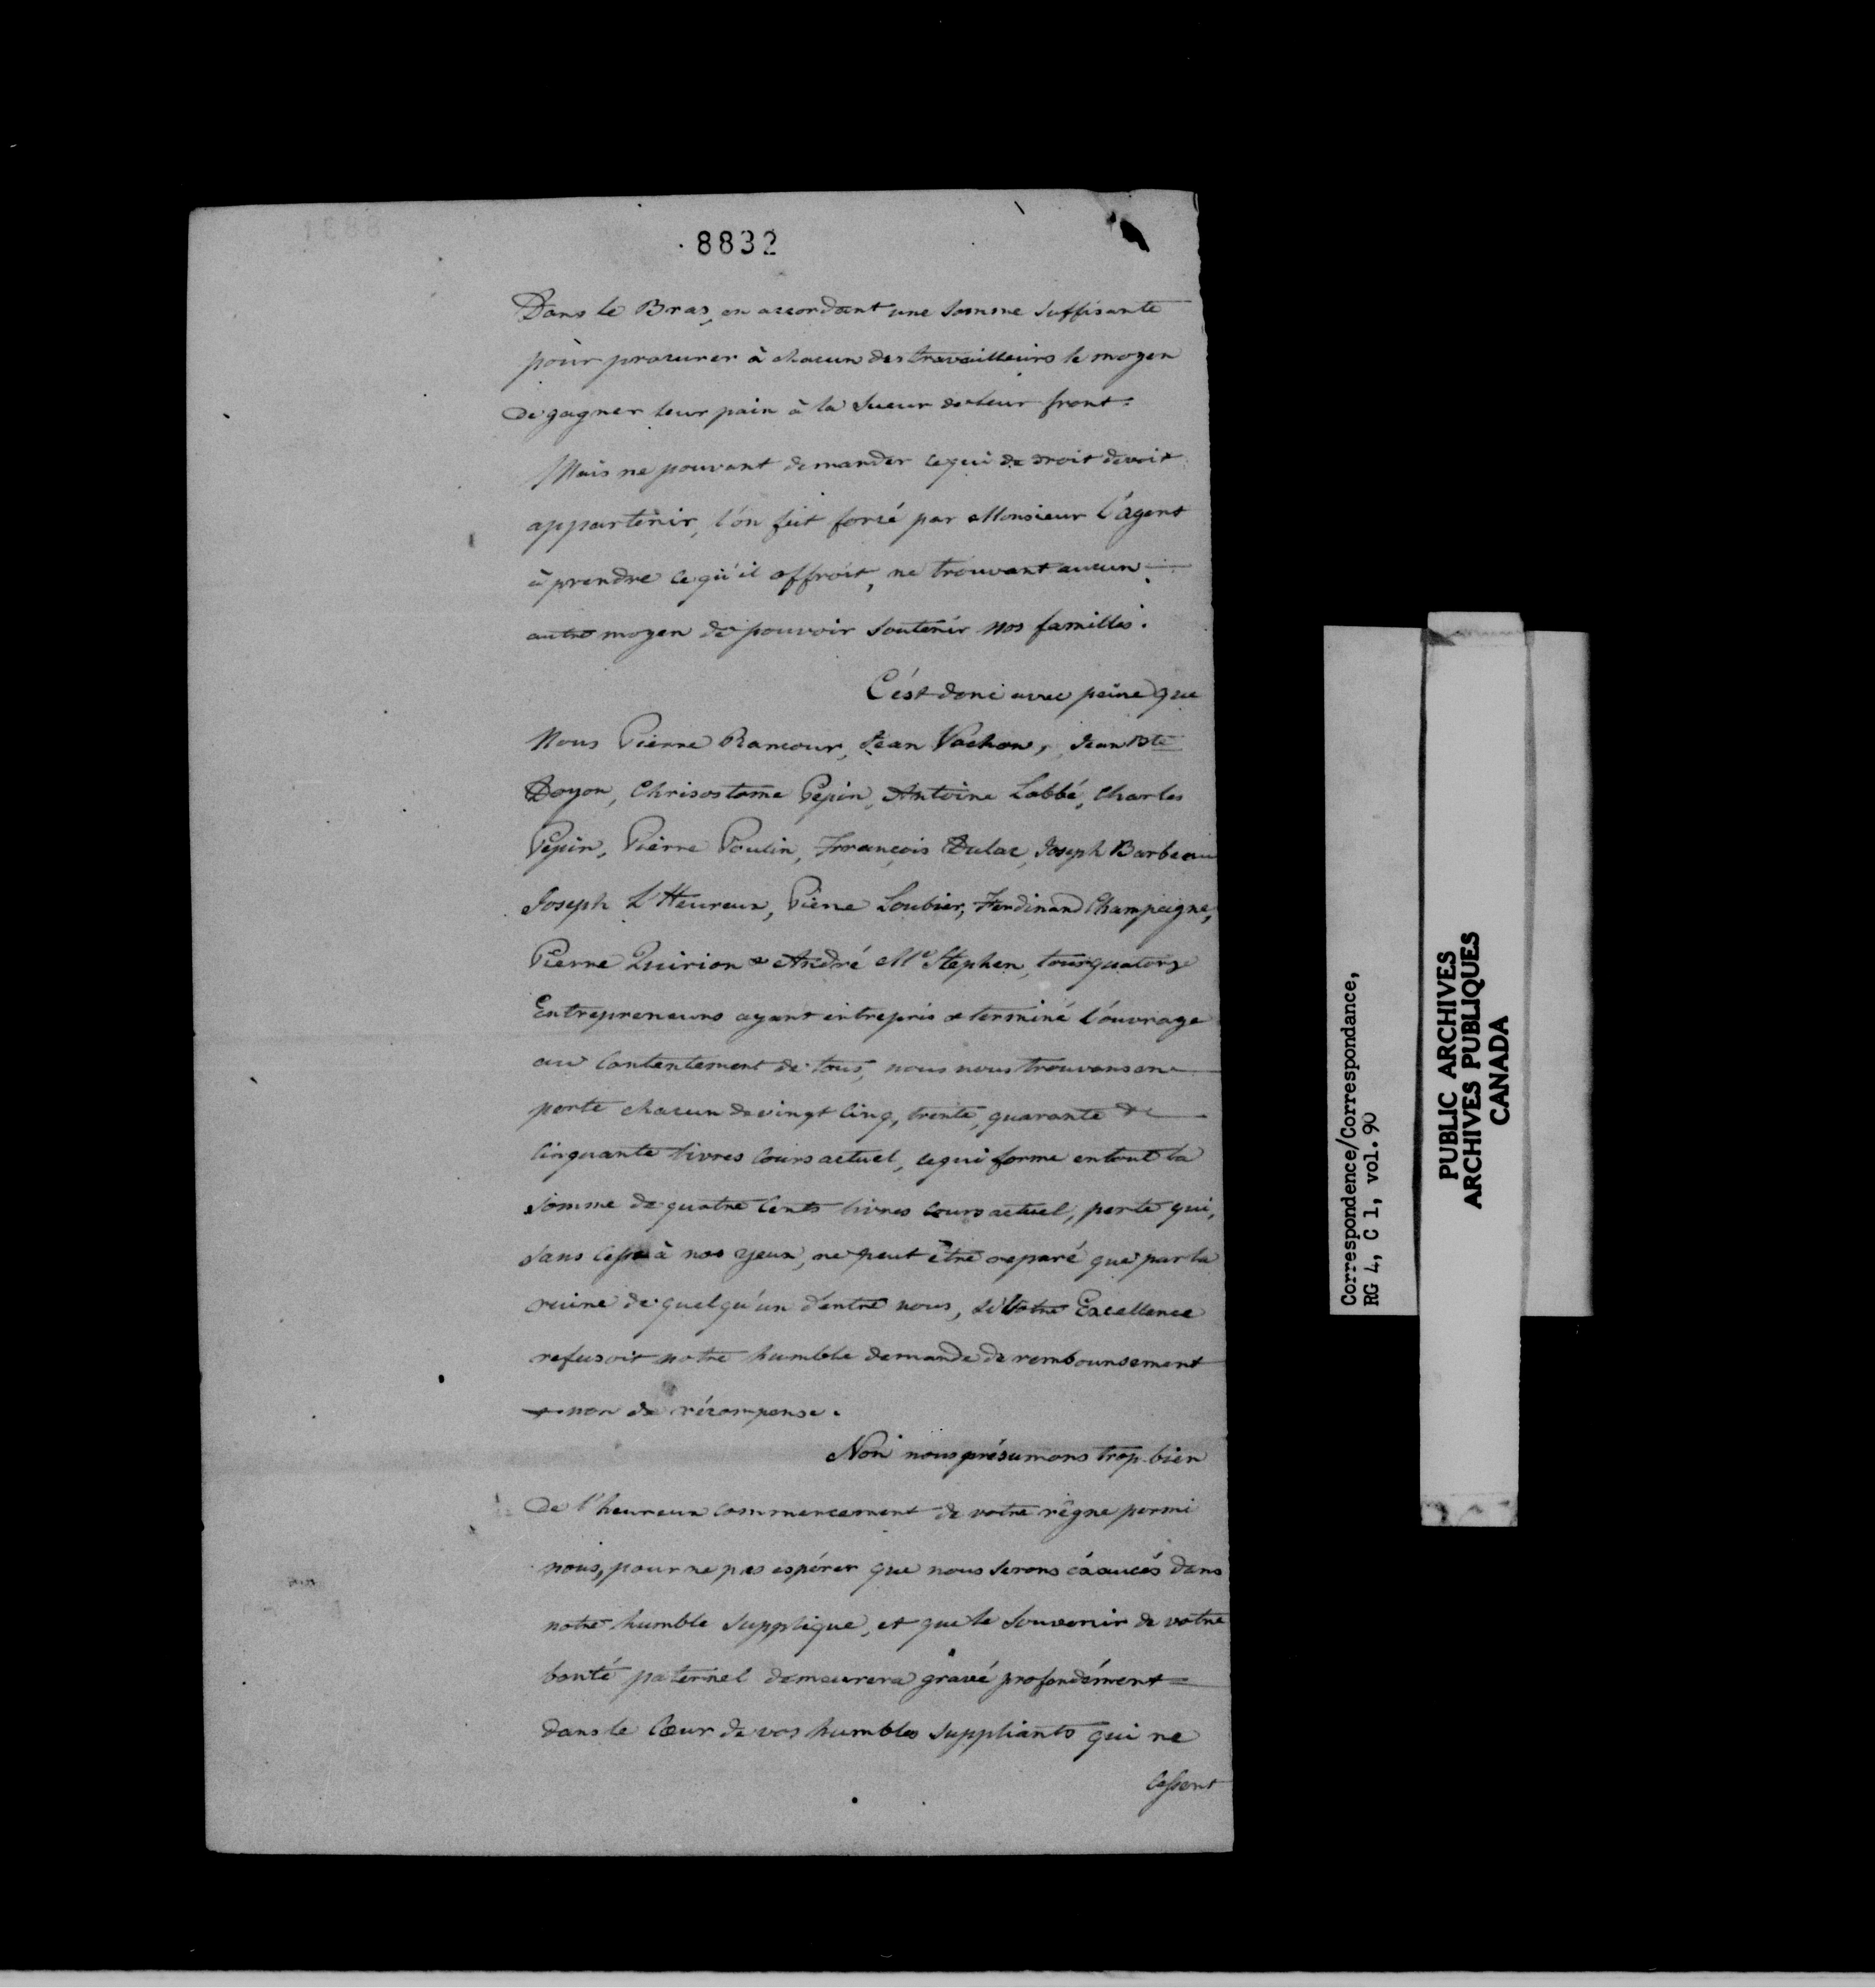 8832
Dans le Bras, en accordant une somme suffisante
pour procurer à chacun des travailleurs le moyen
de gagner leur pain à la sueur de leur front.
Mais ne pouvant demander ce qui de droit devoit
appartenir, l'on fut forcé par Monsieur l'agent
à prendre ce qu'il offroit, ne trouvant aucun
autre moyen de pouvoir soutenir nos familles.
C'est donc avec peine que
Nous Pierre Rancour, Jean Vachon, Jean Bte
Doyon, Chrisostome Pepin, Antoine Labbé, Charles
Pepin, Pierre Poulin, François Dulac, Joseph Barbeau
Joseph L'Heureux, Pierre Loubier, Ferdinand Champaigne,
Pierre Quirion & André McStephen, tous quatorze
Entrepreneurs ayant entrepris & terminé l'ouvrage
au contentement de tous, nous nous trouvons en
perte chacun de vingt cinq, trente, quarante &
cinquante livres cours actuel, ce qui forme en tout la
somme de quatre cents livres cours actuel, perte qui,
sans cesse à nos yeux, ne peut être reparé que par la
ruine de quelqu'un d'entre nous, si Votre Excellence
refusoit notre humble demande de remboursement
& non de récompense.
Non nous présumons trop bien
de l'heureux commencement de votre règne parmi
nous, pour ne pas espérer que nous serons éxaucés dans
notre humble supplique, et que le souvenir de votre
bonté paternel demeurera gravé profondément
dans le Cœur de vos humbles suppliants qui ne
cessent
Correspondence/Correspondance,
RG 4, C 1, vol. 90
PUBLIC ARCHIVES
ARCHIVES PUBLIQUES
CANADA